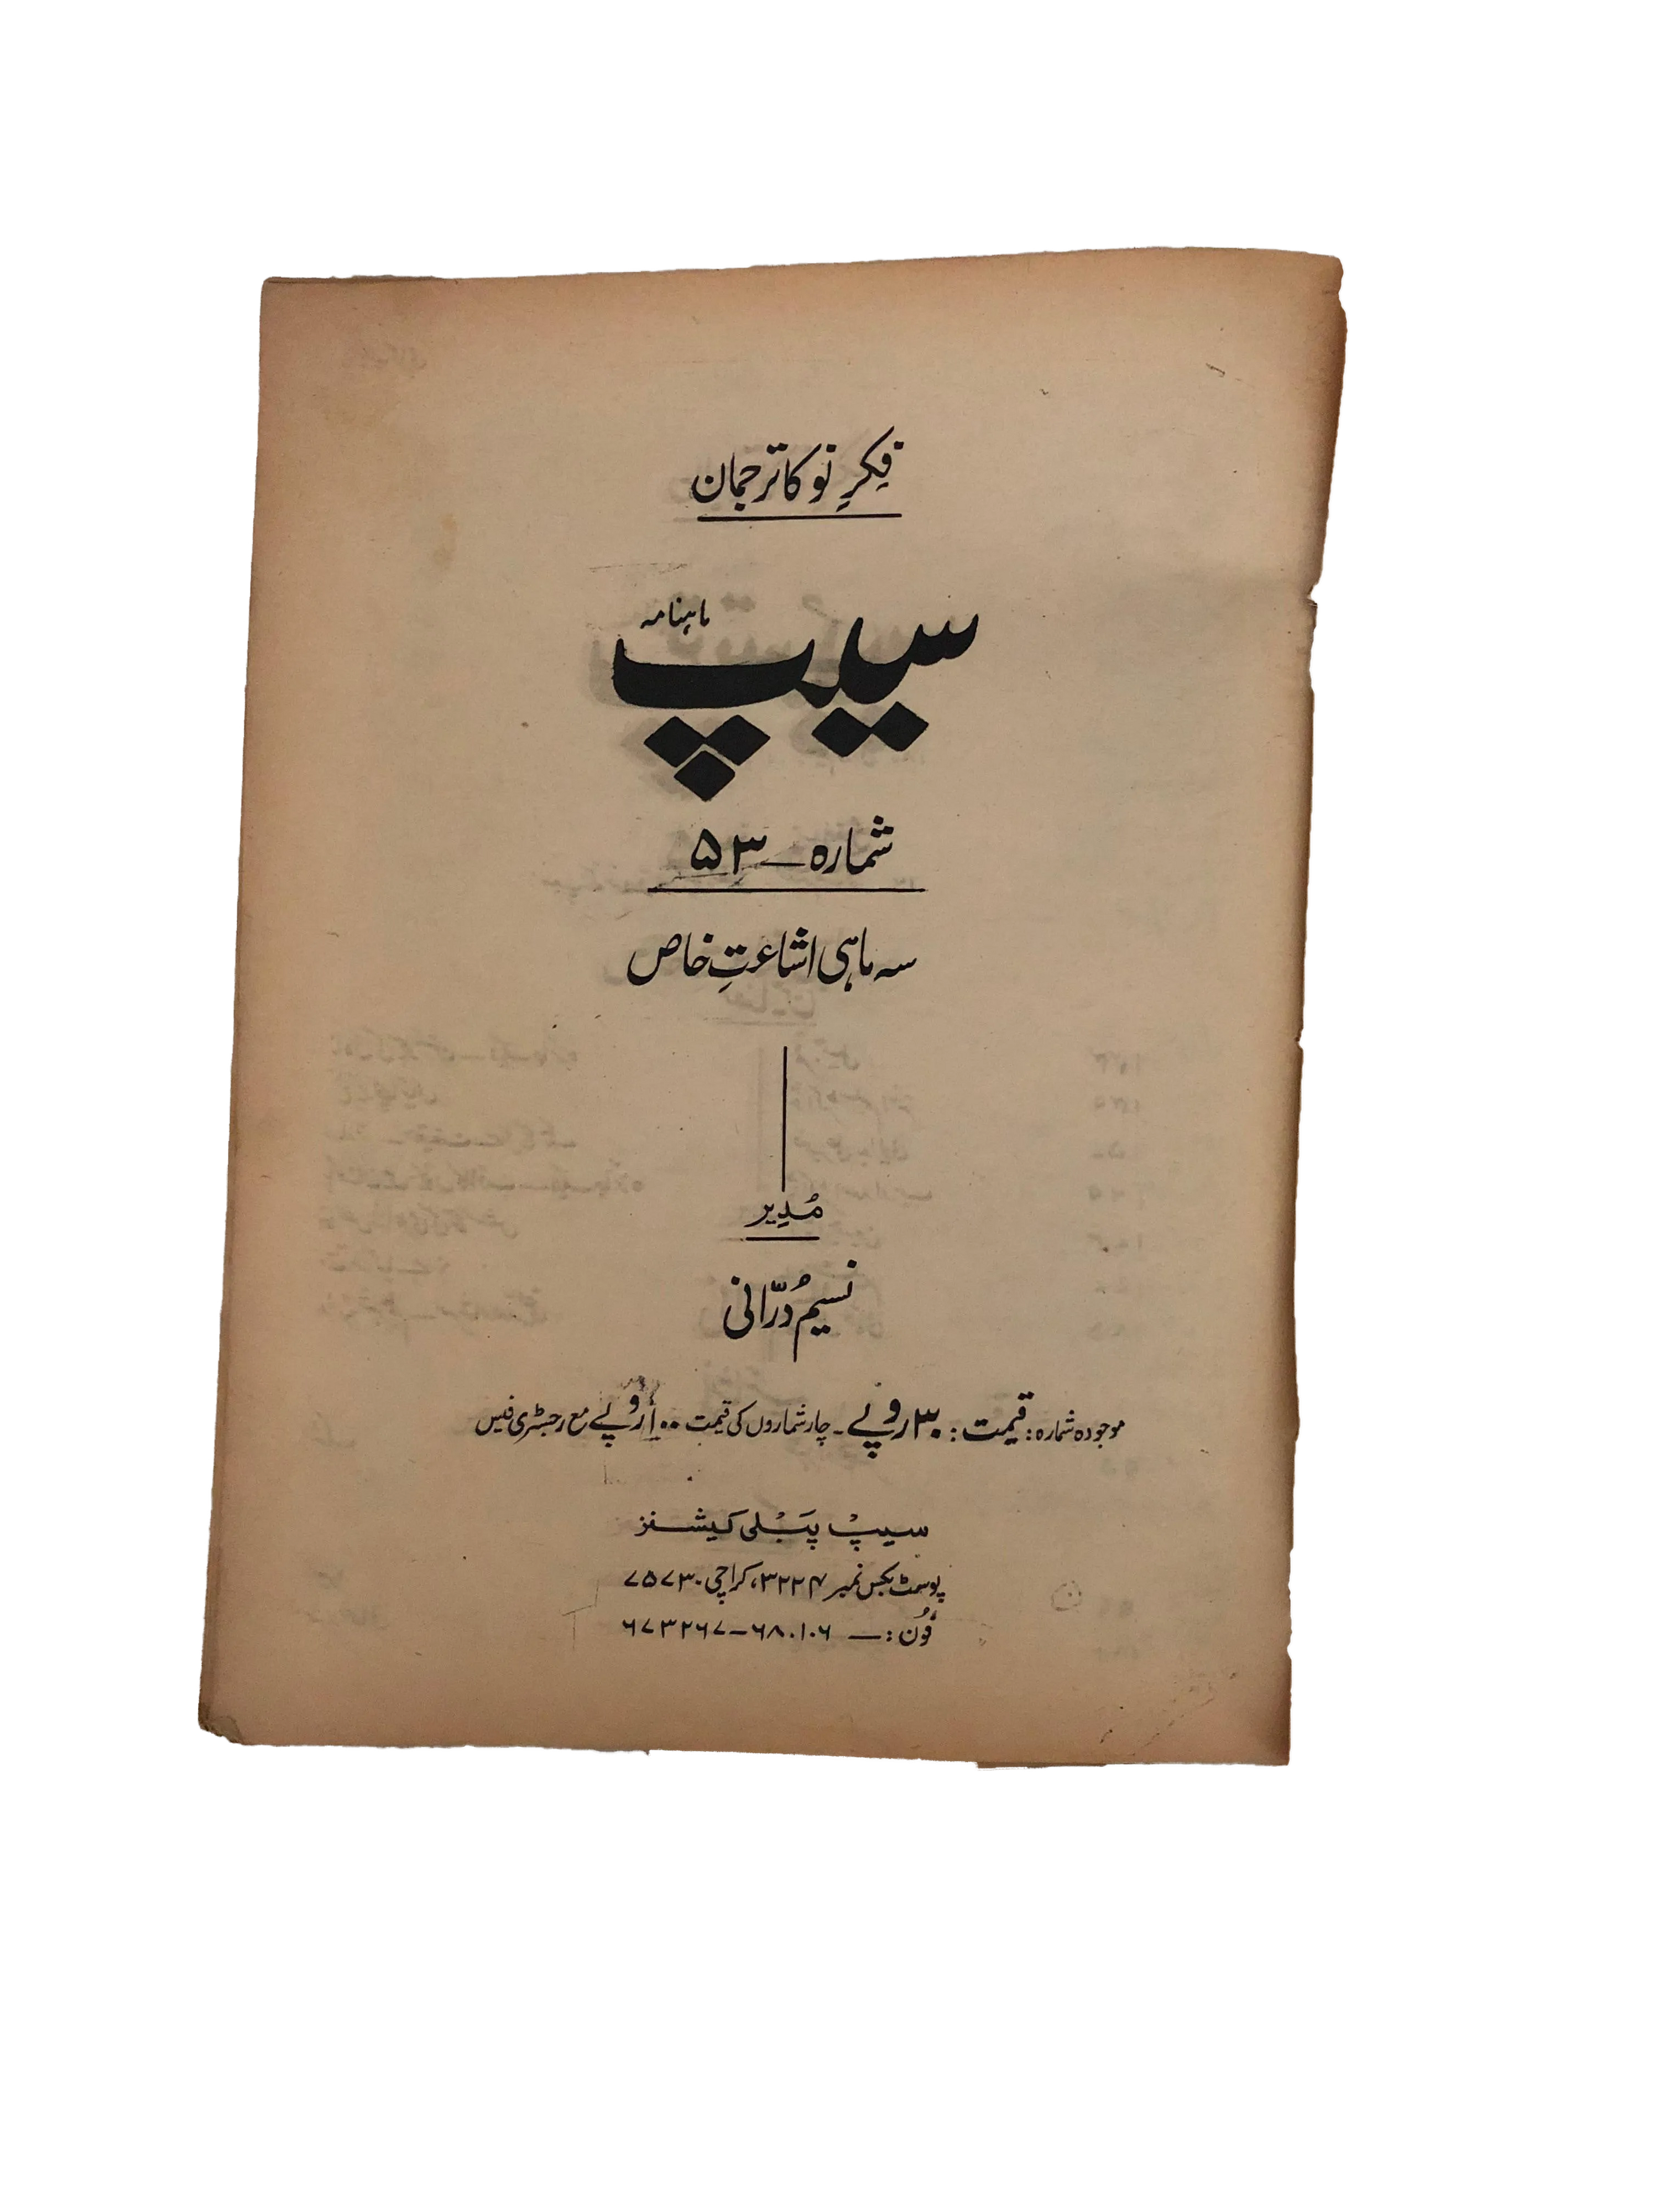 فِکرِ نو کا ترجمان
ماہنامہ
سیپ
شمارہ — ۵۳
سہ ماہی اشاعتِ خاص
مُدِیر
نسیم دُرّانی
موجودہ شمارہ: قیمت: ۳۰ روپے ۔ چار شماروں کی قیمت ۱۰۰ روپے مع رجسٹری فیس
سیپ پَبلی کیشنز
پوسٹ بکس نمبر ۳۲۲۴، کراچی ۷۵۷۳۰
فُون: — ۶۸۰۱۰۶ — ۶۷۳۲۶۷